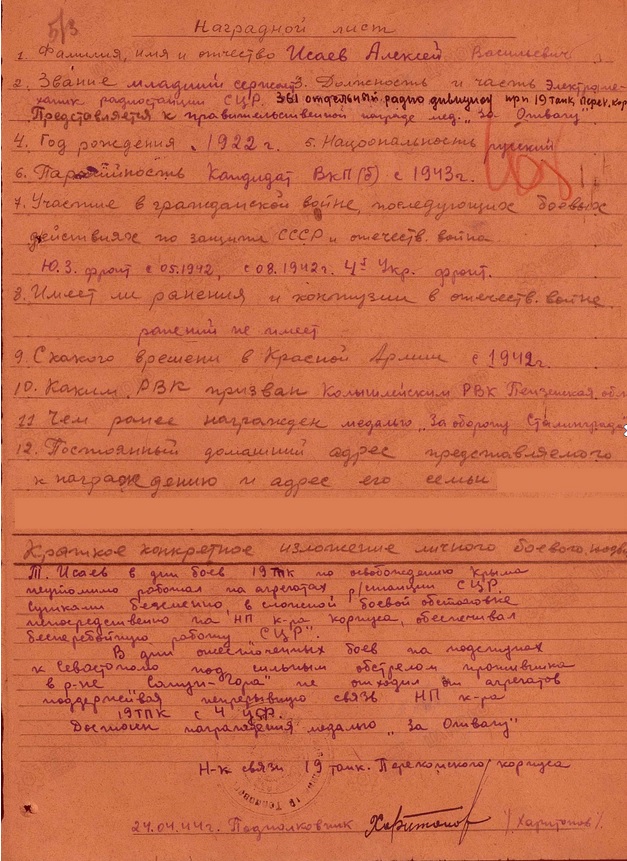 Б/З
Наградной лист
1. Фамилия, имя и отчество Исаев Алексей Васильевич
2. Звание младший сержант 3. Должность и часть Электроме-
ханик радиостанции СЦР. 361 отдельный радио дивизион при 19 танк. перек. кор
Представляется к правительственной награде мед. "За Отвагу"
4. Год рождения 1922г. 5. Национальность русский
6. Партийность Кандидат ВКП(б) с 1943г.
7. Участие в гражданской войне, последующих боевых
действиях по защите СССР и отечеств. война
Ю.З. фронт с 05.1942, с 08.1942г. 4й Укр. фронт.
8. Имеет ли ранения и контузии в отечеств. войне
ранений не имеет
9. С какого времени в Красной Армии с 1942г.
10. Каким РВК призван Колышлейским РВК Пензенская обл
11 Чем ранее награжден медалью "За оборону Сталинграда
12. Постоянный домашний адрес представляемого
к награждению и адрес его семьи
Краткое конкретное изложение личного боевого подви
Т. Исаев в дни боев 19ТПК по освобождению Крыма
неутомимо работал на агрегатах р/станции СЦР.
Сутками бессменно, в сложной боевой обстановке
непосредственно на НП к-ра корпуса, обеспечивал
бесперебойную работу "СЦР".
В дни ожесточенных боев на подступах
к Севастополю под сильным обстрелом противника
в р-не "Сапун-Гора" не отходил от агрегатов
поддерживая непрерывную связь НП к-ра
19ТПК с 4 УФ.
Достоин награждения медалью "За Отвагу"
Н-к связи 19 танк. Перекопского корпуса
24.04.44г. Подполковник Харитонов /Харитонов/.